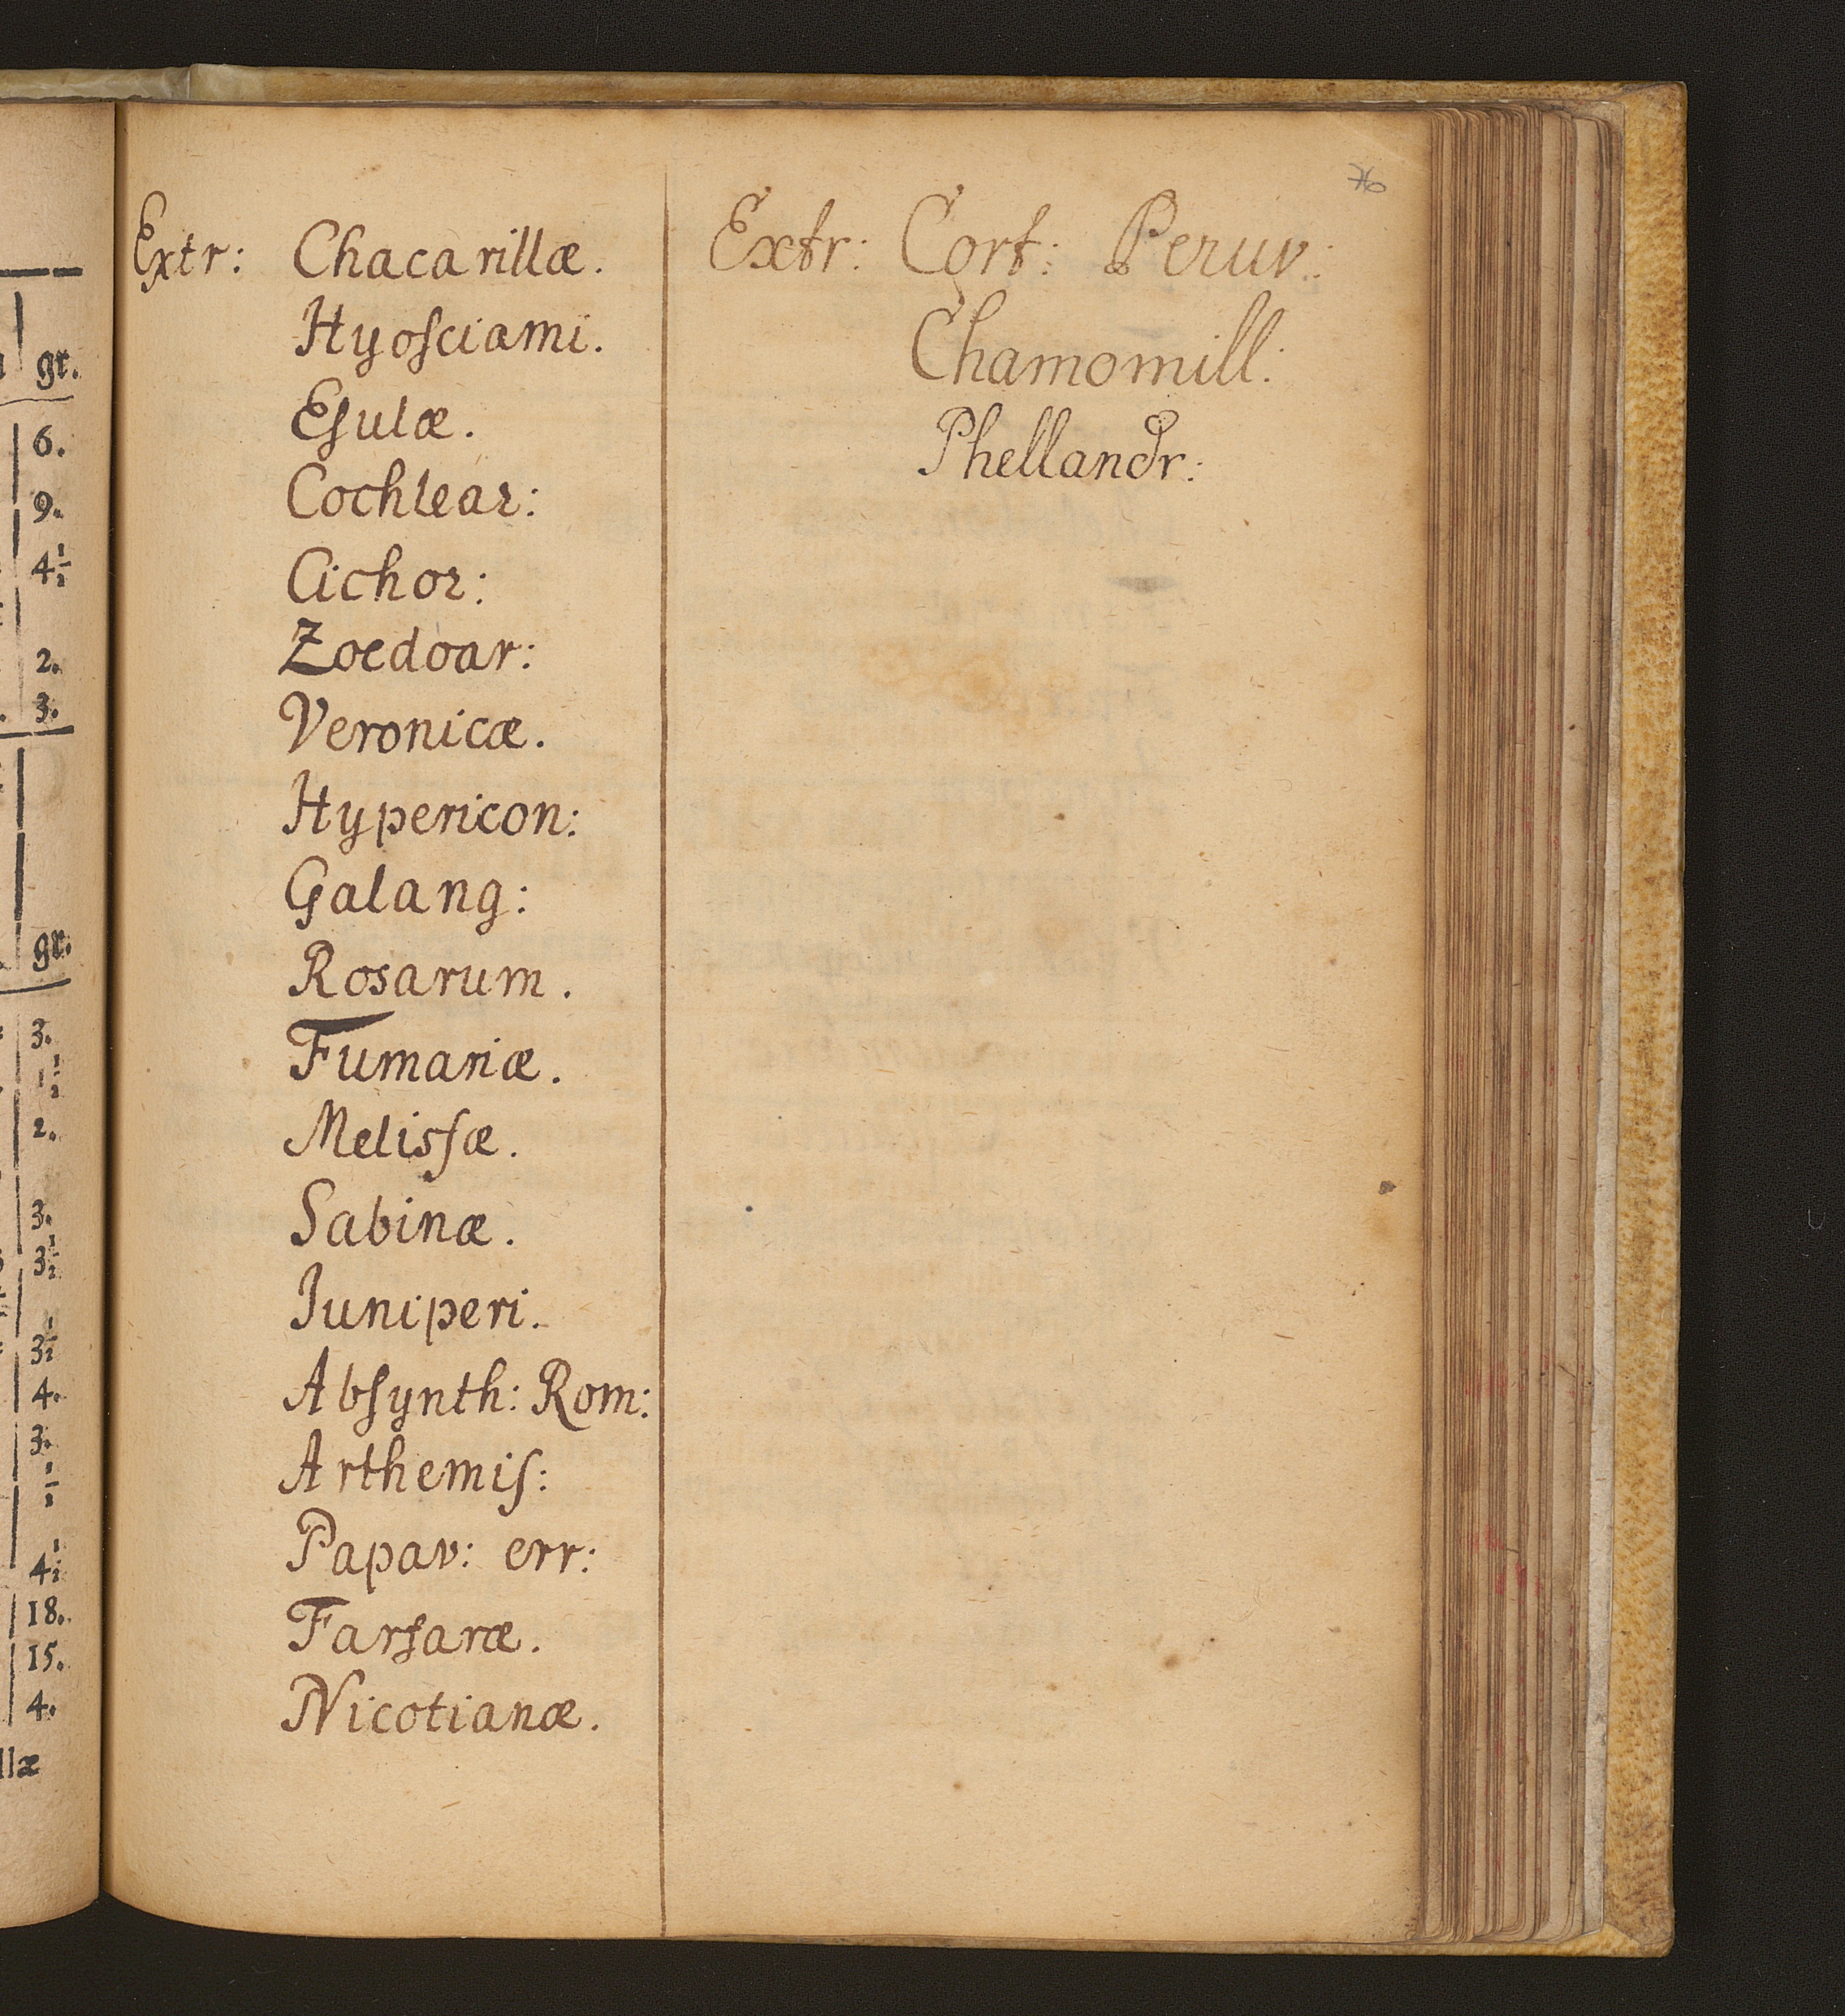 gr.
6.
9.
4 1/2
2.
3.
gr.
3.
1 1/2
2.
3.
3 1/2
3 1/2
4.
3.
1/2
4 1/2
18.
15.
4.
llæ
Extr: Chacarillæ.
Hyoſciami.
Eſulæ.
Cochlear:
Cichor:
Zoedoar:
Veronicæ.
Hypericon:
Galang:
Rosarum.
Fumariæ.
Melisſæ.
Sabinæ.
Iuniperi.
Abſynth: Rom:
Arthemiſ:
Papav: err:
Farſaræ.
Nicotianæ.
Extr: Cort: Peruv:
Chamomill:
Phellandr: